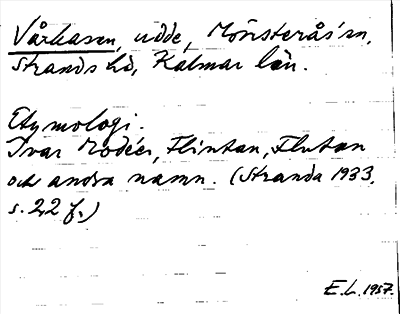 Vårkasen, udde, Mönsterås sn,
Strands hd, Kalmar län.
Etymologi.
Ivar Modéer, Flintan, Flutan
och andra namn. (Stranda 1933,
s. 22 f.)
E.L. 1957.